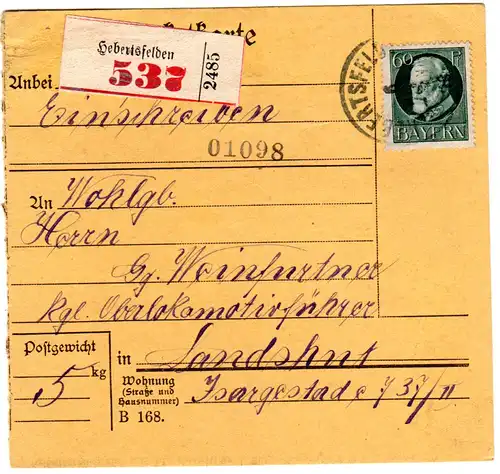 karte
Hebertsfelden
537
2485
Anbei
Einschreiben
01098
60 Pf
BAYERN
ERTSFEL
An Wohlgb.
Herrn
Gg. Weinfurtner
kgl. Oberlokomotivführer
Postgewicht
5 kg
in Landshut
Wohnung
(Straße und
Hausnummer)
Isargestade 737/II
B 168.